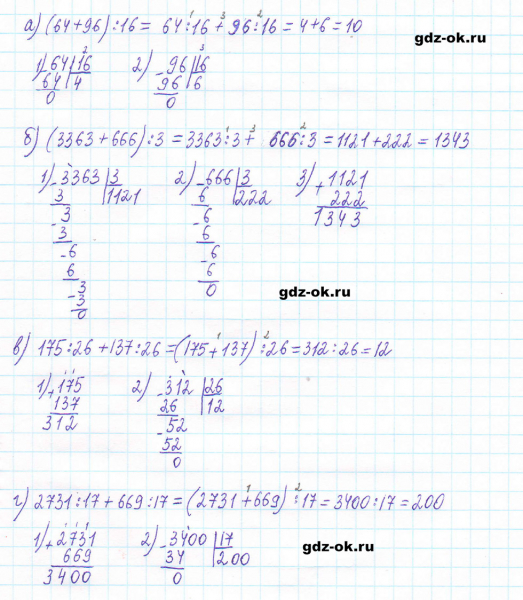 а) (64+96):16 = 64:16 + 96:16 = 4+6 = 10
gdz-ok.ru
1) 64 16 2) 96 16
64 4 96 6
0 0
б) (3363+666):3 = 3363:3 + 666:3 = 1121+222 = 1343
1) 3363 3 2) 666 3 3) + 1121
3 1121 6 222 222
3 6 1343
3 6
6 6
6 6
3 0
3
0
gdz-ok.ru
в) 175:26 + 137:26 = (175+137):26 = 312:26 = 12
1) + 175 2) 312 26
137 26 12
312 52
52
0
г) 2731:17 + 669:17 = (2731+669):17 = 3400:17 = 200
1) + 2731 2) 3400 17
669 34 200
3400 0
gdz-ok.ru